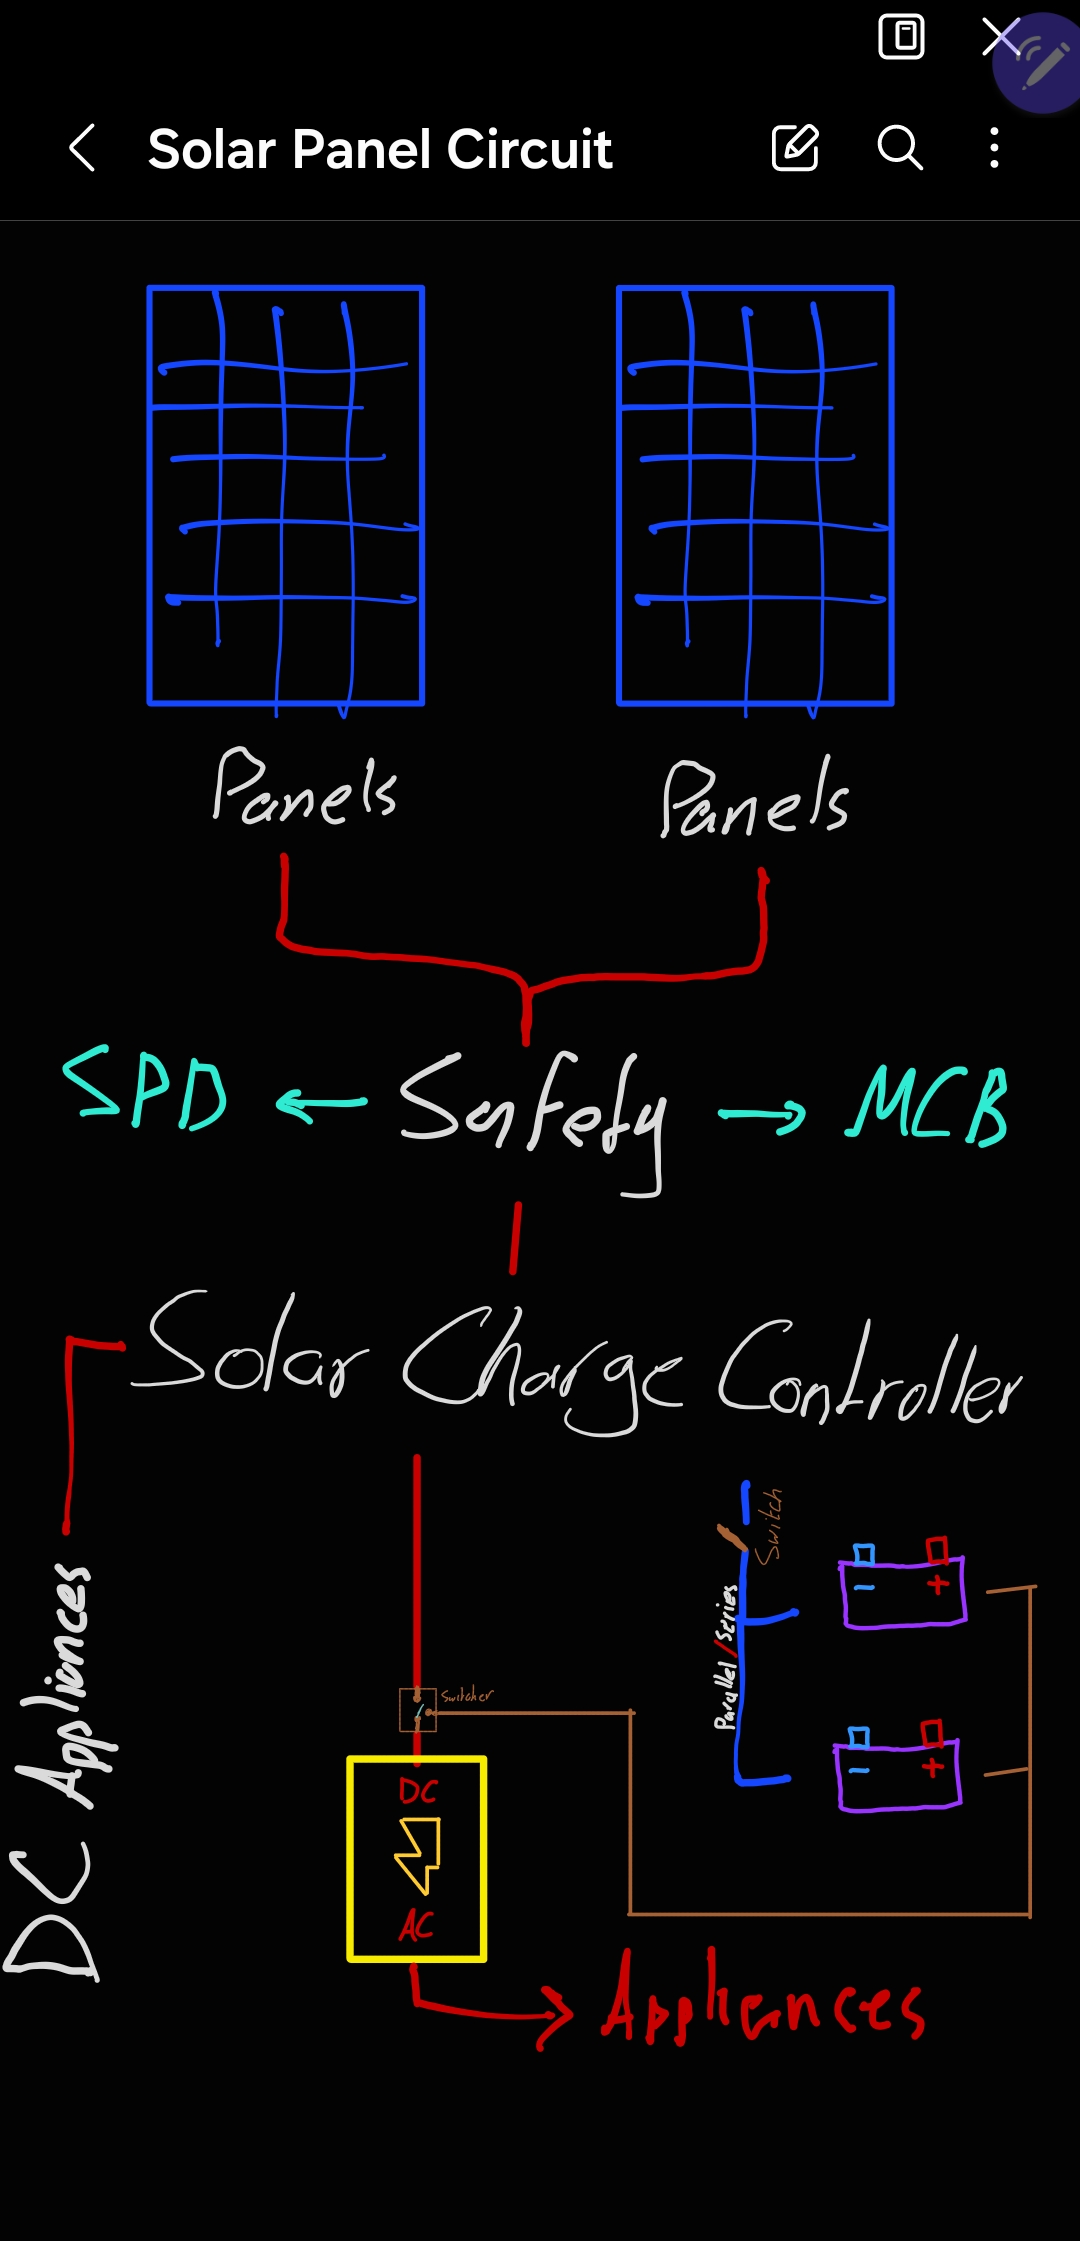 Solar Panel Circuit
Panels
Panels
SPD ← Safety → MCB
Solar Charge Controller
DC Appliances
Switch
Parallel/Series
- +
Switcher
- +
DC
AC
Appliances